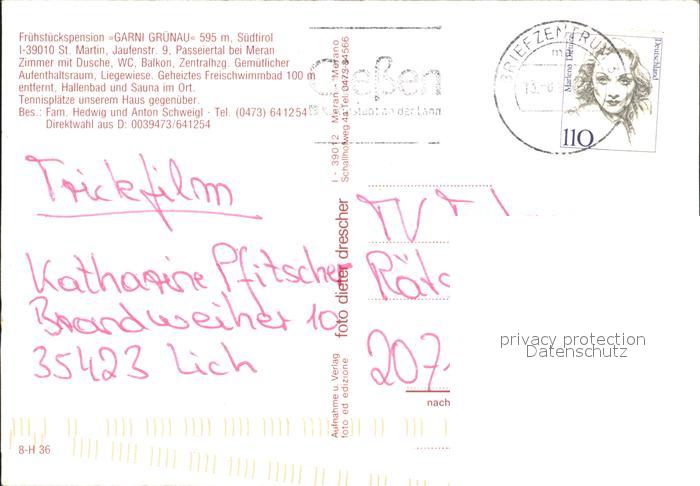 Frühstückspension »GARNI GRÜNAU« 595 m, Südtirol
I-39010 St. Martin, Jaufenstr. 9, Passeiertal bei Meran
Zimmer mit Dusche, WC, Balkon, Zentralhzg. Gemütlicher
Aufenthaltsraum, Liegewiese. Geheiztes Freischwimmbad 100 m
entfernt, Hallenbad und Sauna im Ort.
Tennisplätze unserem Haus gegenüber.
Bes.: Fam. Hedwig und Anton Schweigl · Tel. (0473) 641254
Direktwahl aus D: 0039473/641254
Trickfilm
Katharine Pfitscher
Brandweiher 10
35423 Lich
8-H 36
I - 39012 Meran - Merano
Schallhofweg 4a Tel. 0473-34566
foto dieter drescher
Aufnahme u. Verlag
foto ed edizione
Gießen
an der Lahn
BRIEFZENTRUM
Marlene
Deutschland
110
207
nach
privacy protection
Datenschutz